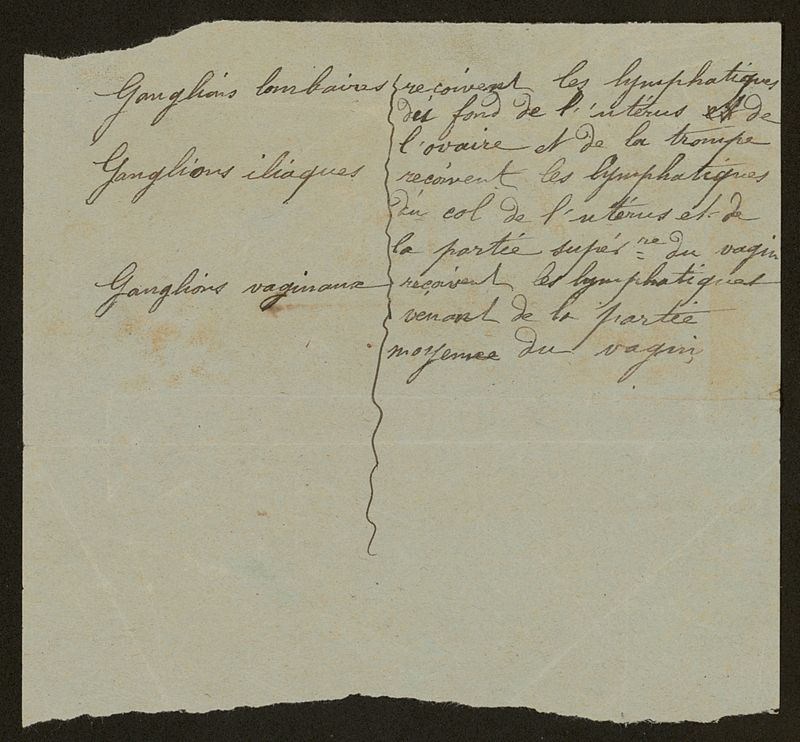 Ganglions lombaires reçoivent les lymphatiques
du fond de l'utérus et de
l'ovaire et de la trompe
Ganglions iliaques reçoivent les lymphatiques
du col de l'utérus et de
la partie supér re du vagin
Ganglions vaginaux reçoivent les lymphatiques
venant de la partie
moyenne du vagin,